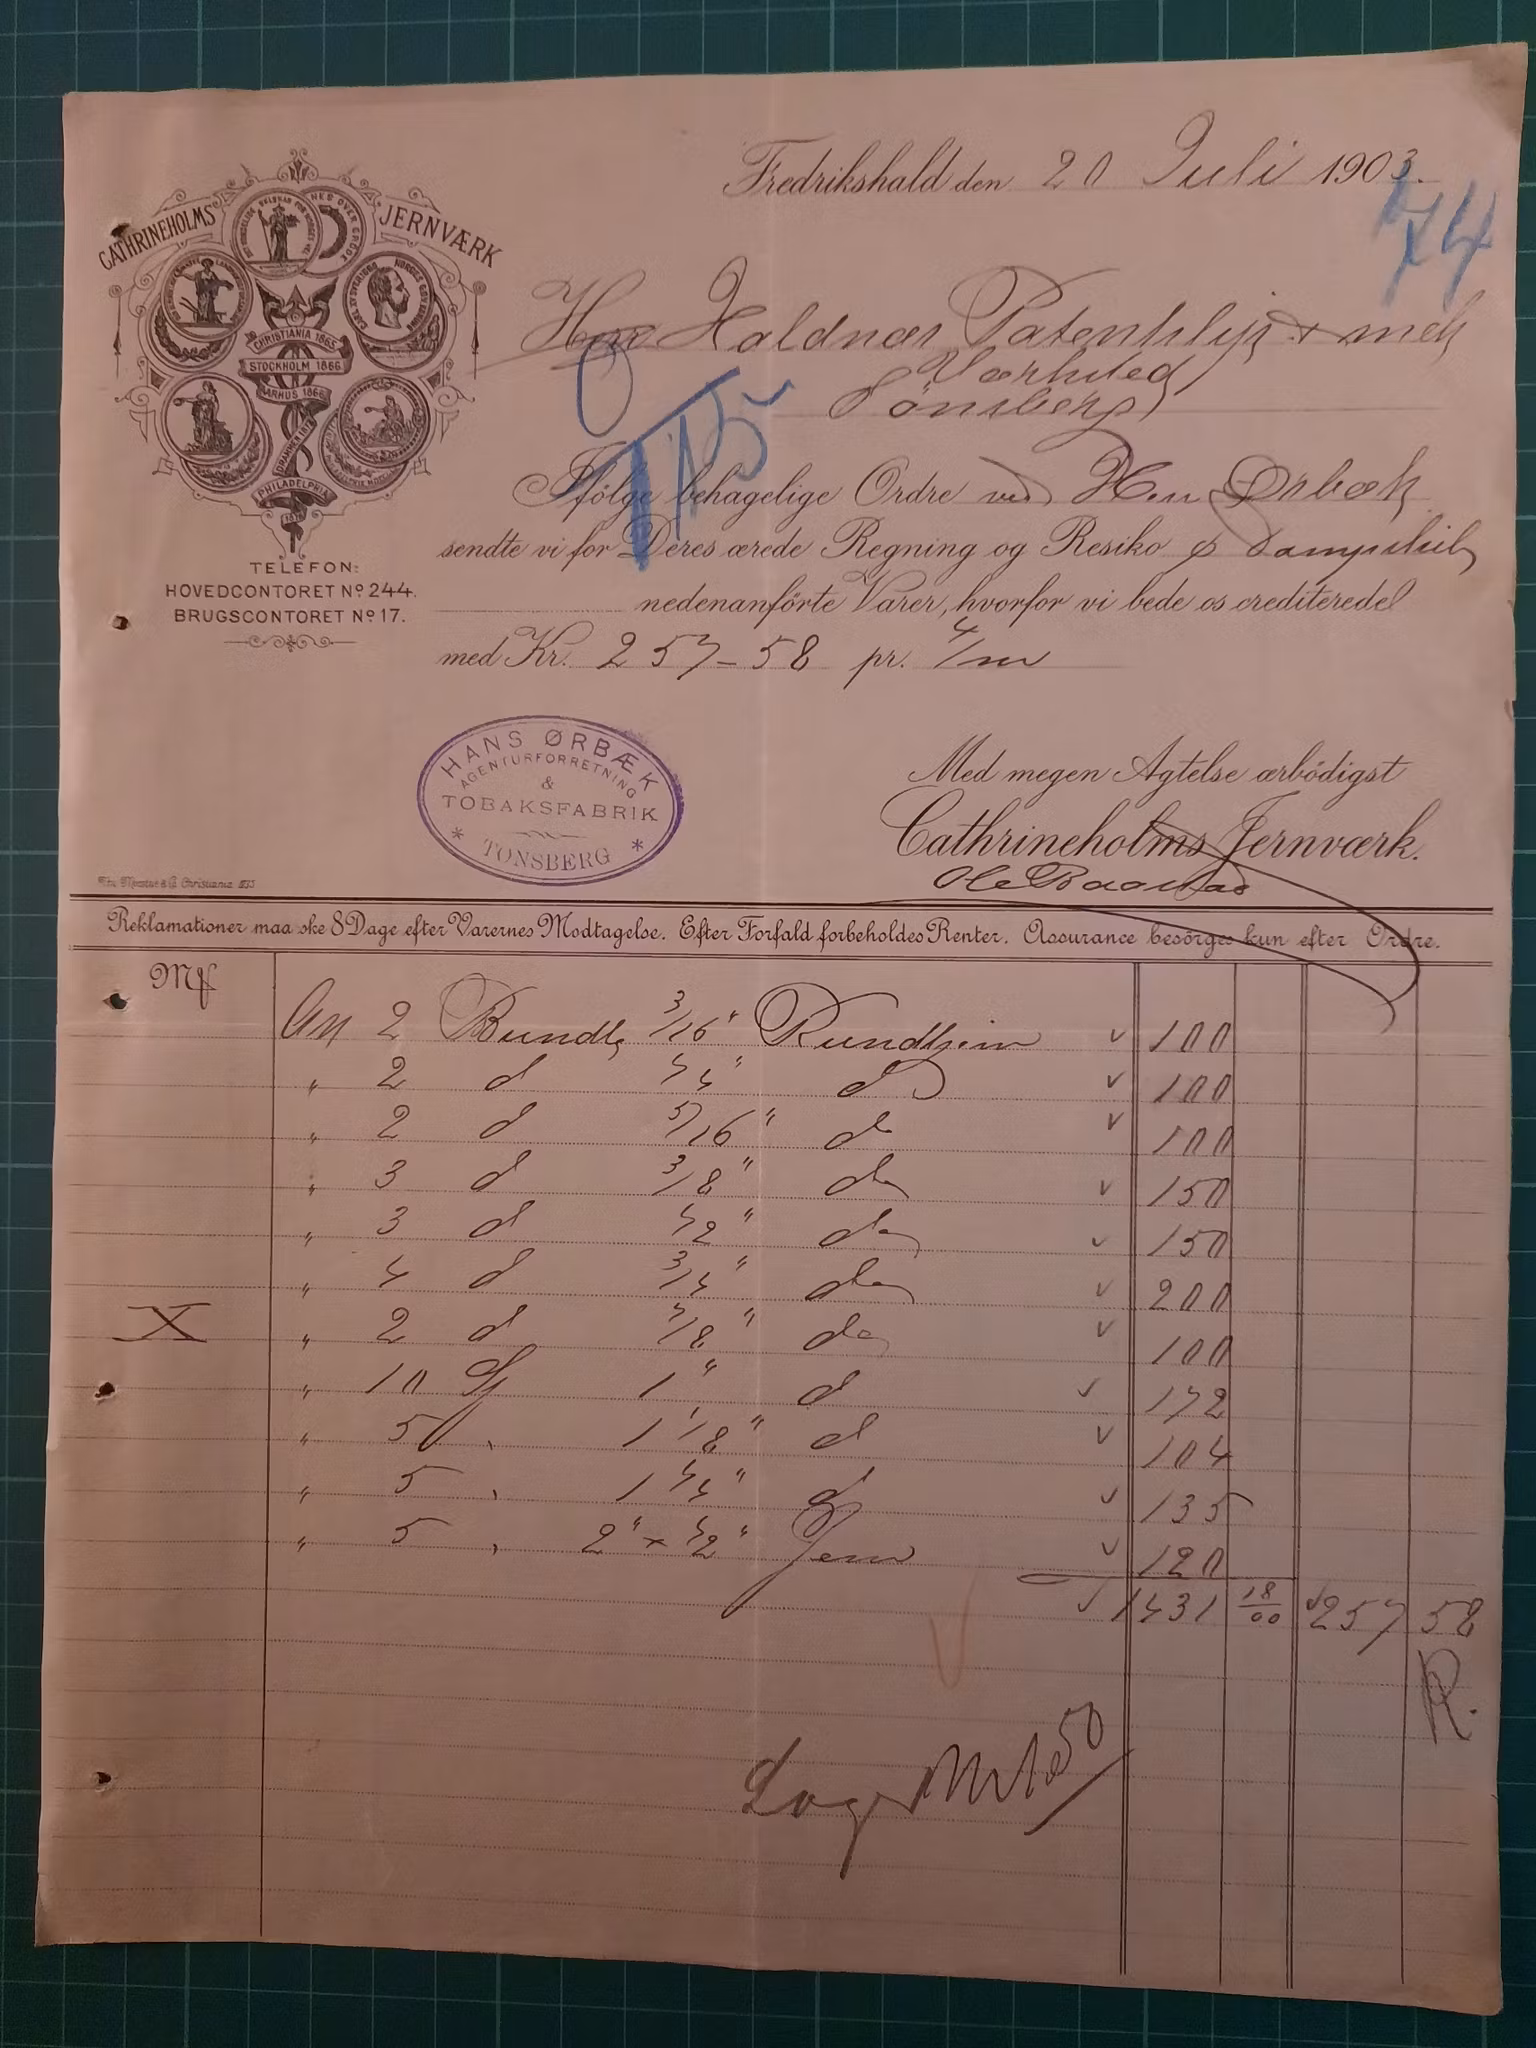 Fredrikshald den 20 Juli 1903.
74
CATHRINEHOLMS JERNVÆRK
CHRISTIANIA 1865
STOCKHOLM 1866
AARHUS 1866
DRAMMEN
PHILADELPHIA
1876
Haldnæs Patentslip & mek
Værksted
Tönsberg
115
TELEFON:
HOVEDCONTORET Nº 244.
BRUGSCONTORET Nº 17.
Ifölge behagelige Ordre ved Herr Ørbæk
sendte vi for Deres ærede Regning og Resiko p Dampskib
nedenanförte Varer, hvorfor vi bede os crediterede
med Kr. 257-58 pr. 4/m
HANS ØRBÆK
AGENTURFORRETNING
&
TOBAKSFABRIK
* TÖNSBERG *
Med megen Agtelse ærbödigst
Cathrineholms Jernværk.
Reklamationer maa ske 8 Dage efter Varernes Modtagelse. Efter Forfald forbeholdes Renter. Assurance besörges kun efter Ordre.
An 2 Bundt 3/16" Rundtjern √ 100
" 2 d 1/4" d √ 100
" 2 d 5/16" do √ 100
" 3 d 3/8" do √ 150
" 3 d 1/2" do √ 150
" 4 d 3/4" do √ 200
X " 2 d 7/8" do √ 100
" 10 1" d √ 172
" 5 " 1 1/8" d √ 104
" 5 " 1 1/4" d √ 135
" 5 " 2" x 1/2" Jern √ 120
√ 1431 18/00 √ 257 58
R.
Lager